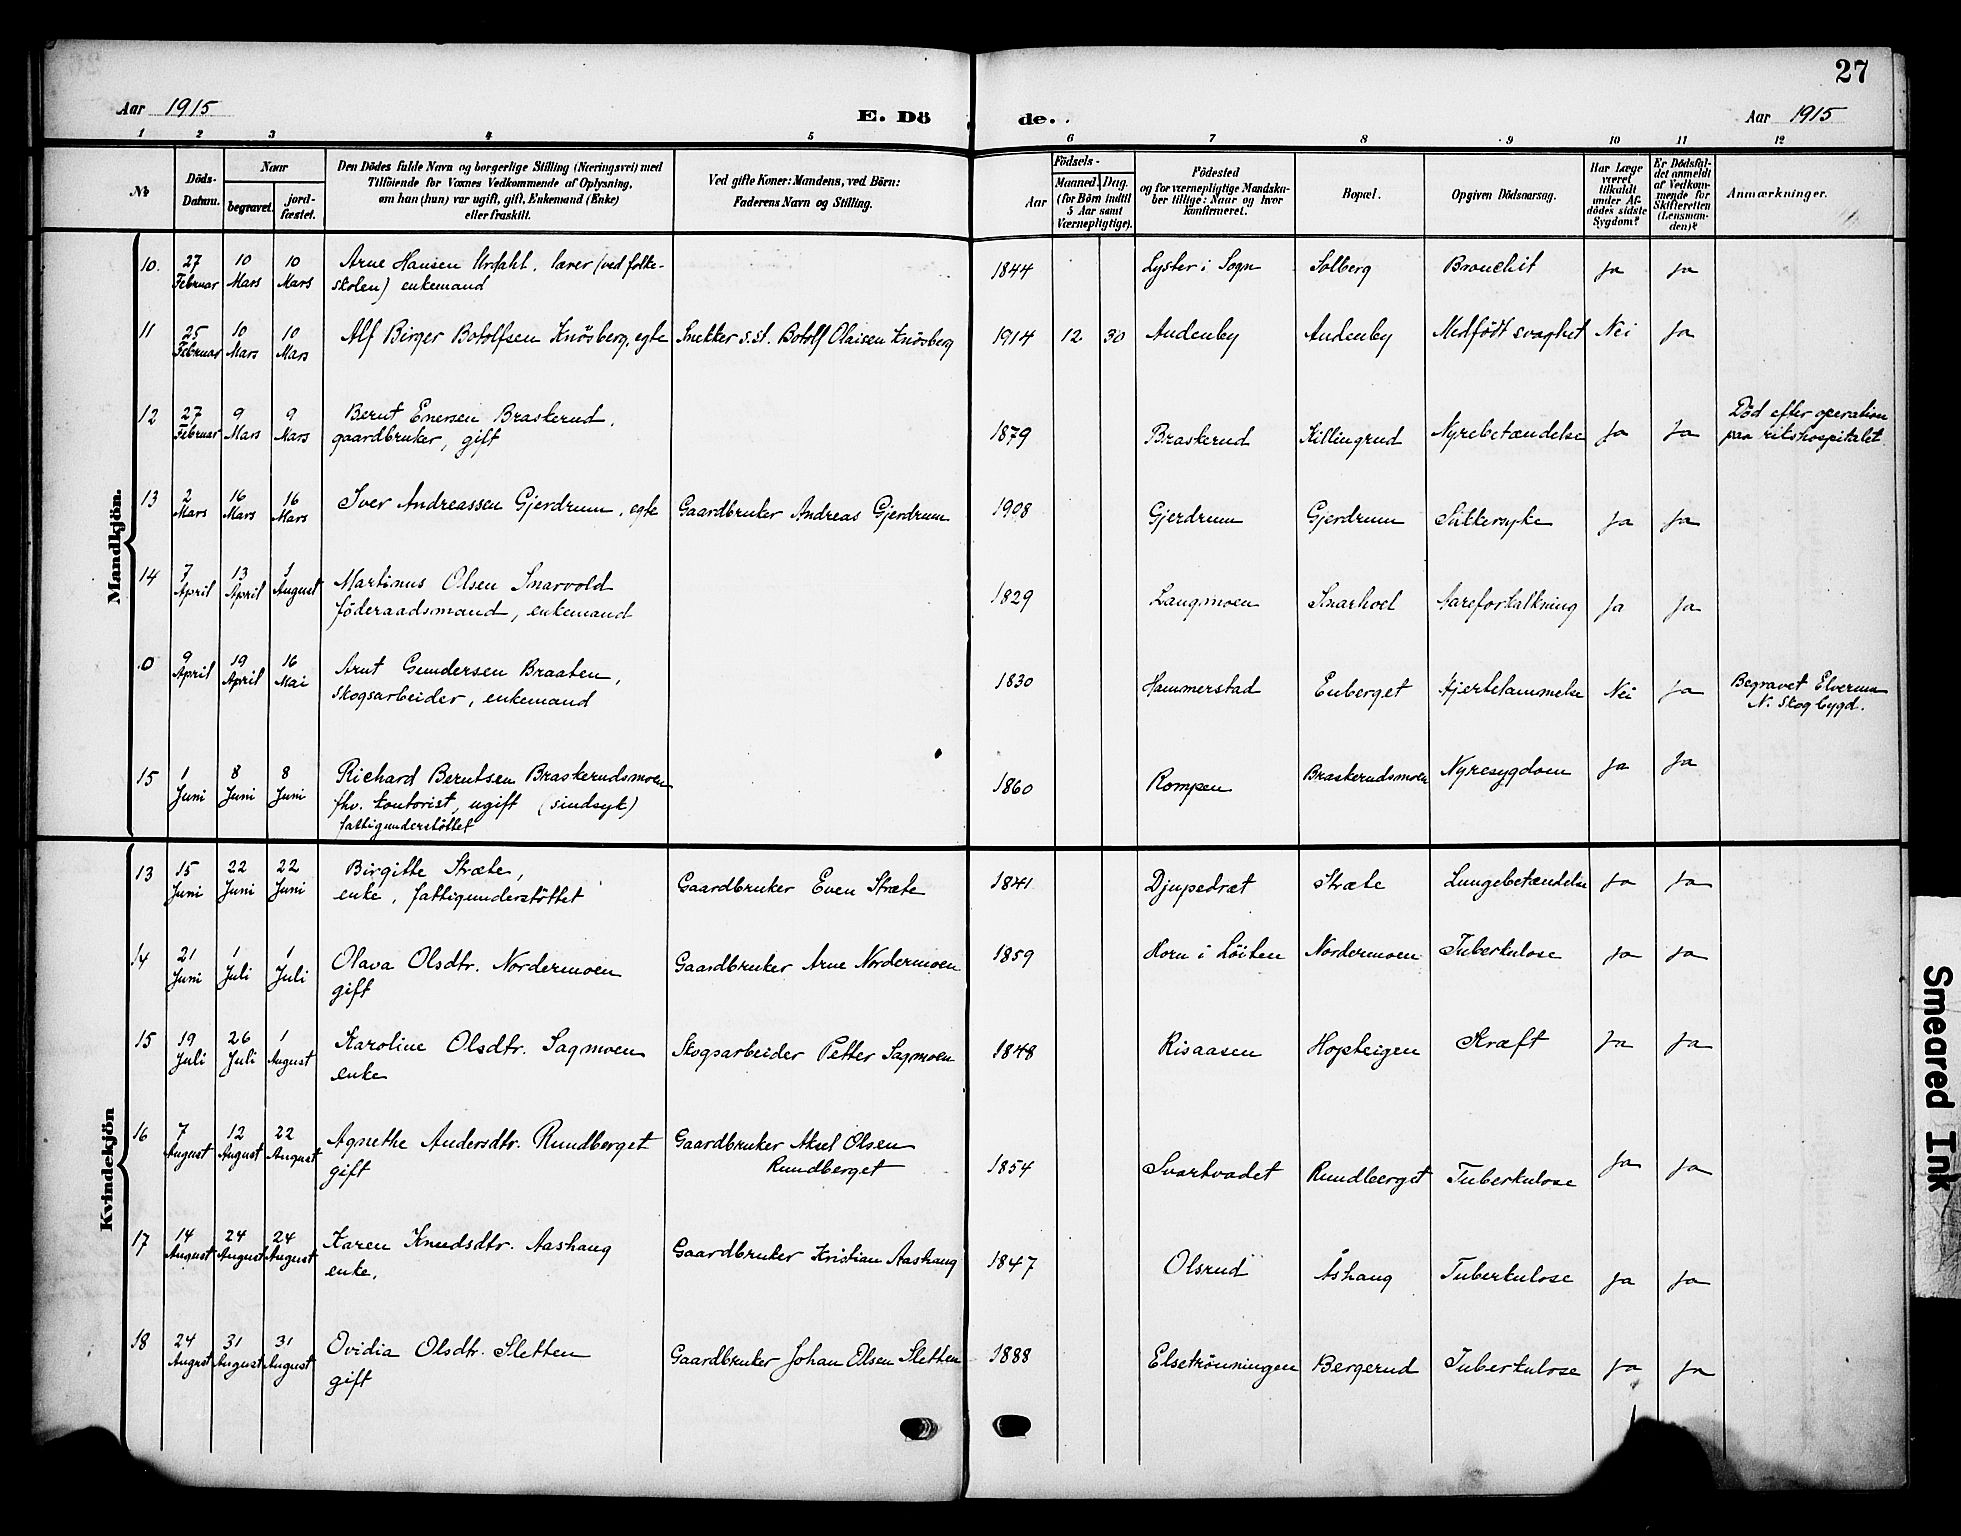 27
Aar 1915 E. Dö de. Aar 1915
1 2 3 4 5 6 7 8 9 10 11 12
No Döds-Datum. Naar begravet. jord-fæstet. Den Dödes fulde Navn og borgerlige Stilling (Næringsvei) med Tilföiende for Voxnes Vedkommende af Oplysning, om han (hun) var ugift, gift, Enkemand (Enke) eller fraskilt. Ved gifte Koner: Mandens, ved Börn: Faderens Navn og Stilling. Födsels- Aar Maaned. Dag. (for Börn indtil 5 Aar samt Værnepligtige). Födested og for værnepligtige Mandskaber tillige: Naar og hvor konfirmeret. Bopæl. Opgiven Dödsaarsag. Har Læge været tilkaldt under Afdödes sidste Sygdom? Er Dödsfaldet anmeldt af Vedkommende for Skifteretten (Lensmanden)? Anmærkninger.
Mandkjön.
10. 27 Februar 10 Mars 10 Mars Arne Hansen Urdahl, lærer (ved folke- 1844 Lyster i Sogn Solberg Bronchit Ja Ja
skolen) enkemand
11 25 Februar 10 Mars 10 Mars Alf Birger Botolfsen Knösberg, egte Snekker s.st. Botolf Olaisen Knösberg 1914 12 30 Audenby Audenby Medfödt svaghet Nei Ja
12 27 Februar 9 Mars 9 Mars Bernt Enersen Braskerud, Död efter operation
gaardbruker, gift 1879 Braskerud Killingrud Nyrebetændelse Ja Ja paa rikshospitalet
13 2 Mars 16 Mars 16 Mars Iver Andreassen Gjerdrum, egte Gaardbruker Andreas Gjerdrum 1908 Gjerdrum Gjerdrum Sukkersyke Ja Ja
14 7 April 13 April 1 August Martinus Olsen Snarvold
föderaadsmand, enkemand 1829 Langmoen Snarhoel Aareforkalkning Ja Ja
0 9 April 19 April 16 Mai Arnt Gundersen Braaten, 1830 Hammerstad Enberget Hjertelammelse Nei Ja Begravet Elverum
skogsarbeider, enkemand N. Skogbygd.
15 1 Juni 8 Juni 8 Juni Richard Berntsen Braskerudsmoen 1860 Rompen Braskerudsmoen Nyresygdom Ja Ja
fhv. kontorist, ugift (sindsyk)
fattigunderstöttet
Kvindekjön
13 15 Juni 22 Juni 22 Juni Birgitte Stræte, Gaardbruker Even Stræte 1841 Djupedræt Stræte Lungebetændelse Ja Ja
enke, fattigunderstöttet
14 21 Juni 1 Juli 1 Juli Olava Olsdtr. Nordermoen Gaardbruker Arne Nordermoen 1859 Horn i Löiten Nordermoen Tuberkulose Ja Ja
gift
15 19 Juli 26 Juli 1 August Karoline Olsdtr. Sagmoen Skogsarbeider Petter Sagmoen 1848 Risaasen Hopsteigen Kræft Ja Ja
enke
16 7 August 12 August 22 August Agnethe Andersdtr. Rundberget Gaardbruker Aksel Olsen
gift Rundberget 1854 Svartvadet Rundberget Tuberkulose Ja Ja
17 14 August 24 August 24 August Karen Knudsdtr. Aashaug Gaardbruker Kristian Aashaug 1847 Olsrud Åshaug Tuberkulose Ja Ja
enke.
18 24 August 31 August 31 August Ovidia Olsdtr. Sletten Gaardbruker Johan Olsen Sletten 1888 Elsetrönningen Bergerud Tuberkulose Ja Ja
gift
Smeared Ink